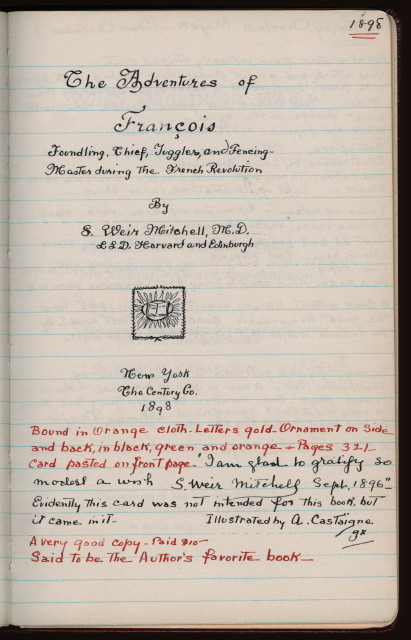 1898
The Adventures of
François
Foundling, Thief, Juggler, and Fencing-
Master during the French Revolution
By
S. Weir Mitchell, M.D.
LLD. Harvard and Edinburgh
New York
The Century Co.
1898
Bound in Orange cloth - Letters gold - Ornament on Side
and back, in black, green and orange - Pages 321-
Card pasted on front page - "I am glad to gratify so
modest a wish S. Weir Mitchell Sept. 1896"-
Evidently this card was not intended for this book, but
it came in it - Illustrated by A. Castaigne
98
A very good copy - Paid $10-
Said to be the Author's favorite book-